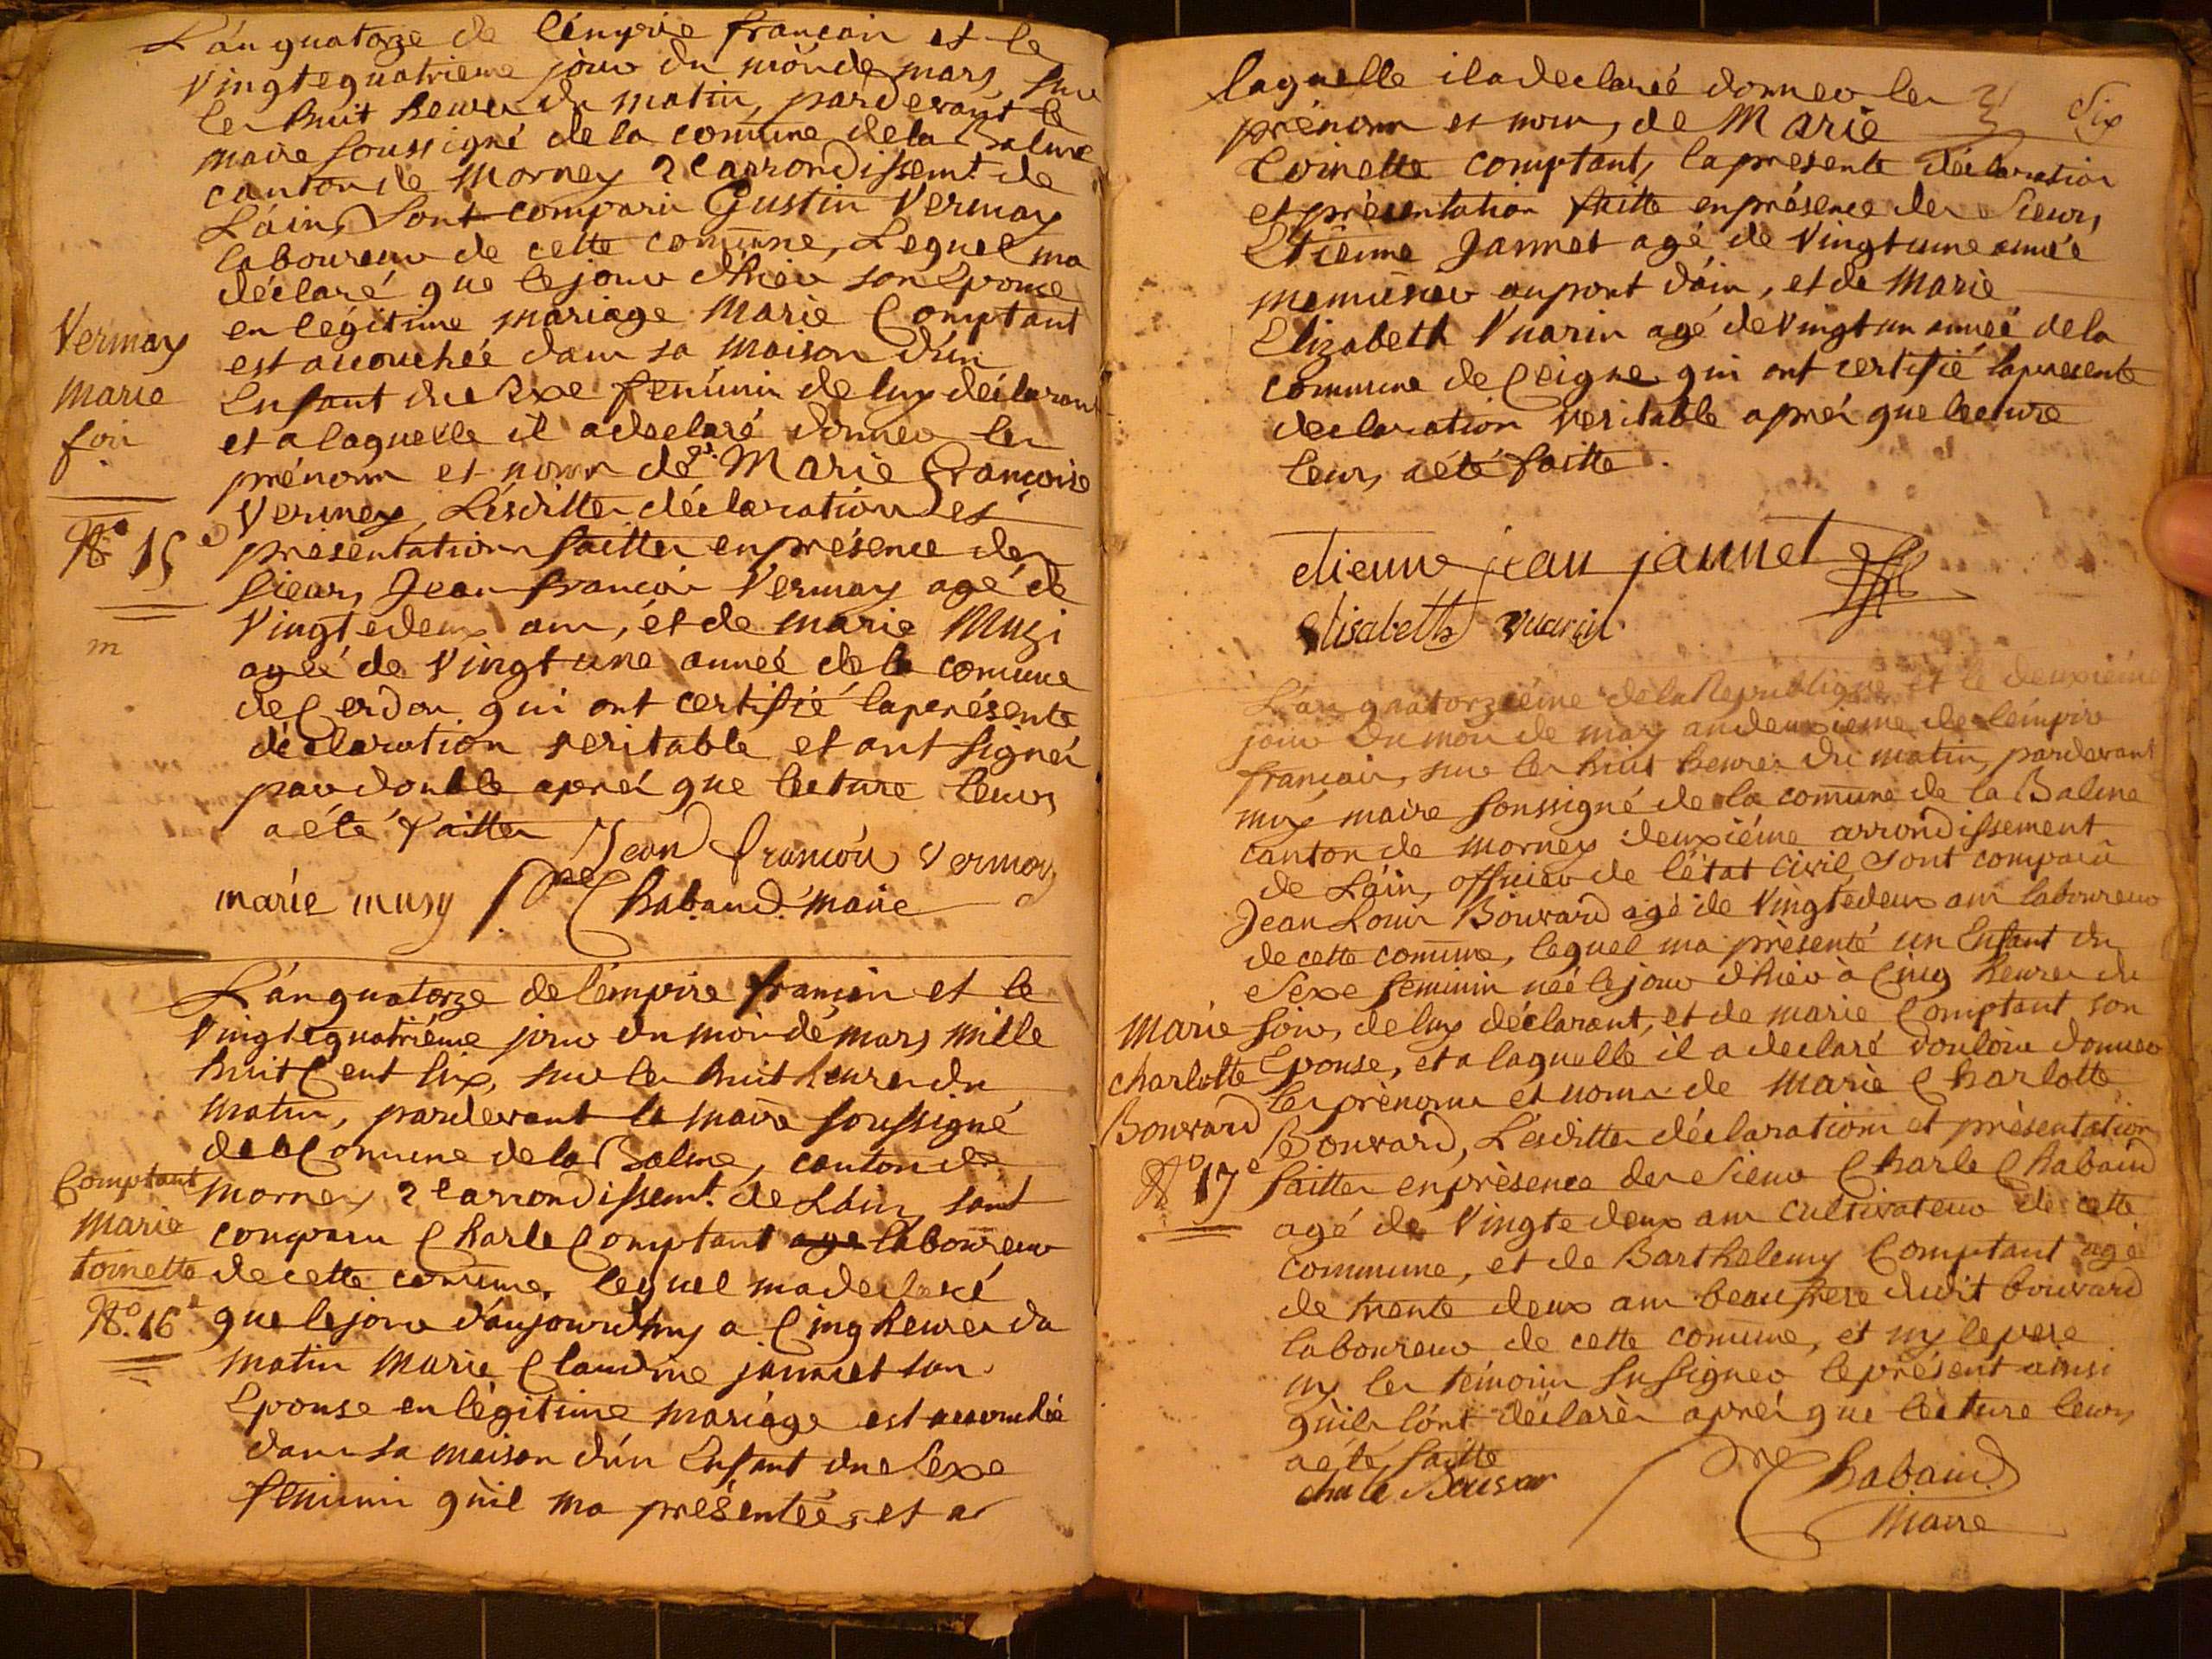 L'an quatorze de l'émpire francain et le
vingtequatrieme jour du moi de mars, sur
les huit heures du matin, pardevant le
maire soussigné de la comune de la Balme
canton de Morney 2e arrondissemt. de
L'ain, Sont comparu Gustin Vermay
laboureur de cette comune, Lequel ma
déclaré que le jour d'hier son Epouse
en légitime mariage Marie Comptant
est acouchée dans sa maison d'un
Enfant du Sexe feminin de luy déclarant
et a laquelle il a declaré donner les
prénom et noms de Marie Françoise
Vermey, Lesditte déclaration et
présentation faitte en présence des
Sieurs, Jean françois Vermay agé de
Vingtedeux ans, et de marie Muzi
ageé de Vingt une anneé de la comune
de Cerdon qui ont certifié la présente
déclaration veritable et ont signer
par double aprés que lecture leurs
a été faitte
Jean françois vermay
marie musy Chabaud maire
Vermay
Marie
foi
No. 15e
m
L'an quatorze de l'émpire francain et le
Vingtequatriéme jour du moi de mars mille
huit Cent Six, sur les huit heures du
matin, pardevant le maire soussigné
de la Comune de la Balme, canton de
Morney 2e arrondissemt. de L'ain, sont
comparu Charle Comptant age laboureur
de cette comune, lequel ma declaré
que le jour d'aujourdhuy a Cinq heures du
matin Marie Claudine jannet son
Epouse en légitime mariage est acouchée
dans sa maison d'un Enfant du Sexe
féminin qu'il ma présentée, et a
Comptant
Marie
toinette
No. 16e
Six
laquelle il a declareé donner les
prénom et nom, de Marie
Toinette Comptant, la presente déclaration
et présentation faitte en présence des Sieurs,
Etienne Jannet agé de Vingt une année
menusier au pont d'ain, et de Marie
Elizabeth Vuarin agé de Vingt un anneé de la
commune de Ceigne qui ont certifié la presente
declaration veritable aprés que lecture
leurs, a été faitte.
etienne jean jannet
elisabeth vuarin
L'an quatorziéme de la Republique et le deuxiéme
jour du moi de may an deuxieme de l'empire
francain, sur les huit heures du matin, pardevant
moy maire soussigné de la comune de la Balme
canton de Morney deuxiéme arrondissement
de L'ain, officier de l'état Civil, sont comparû
Jean Louis Bouvard agé de Vingtedeux ans laboureur
de cette comune, lequel ma présenté un Enfant du
Sexe feminin neé le jour d'hier à Cinq heures du
soir, de luy déclarant, et de marie Comptant son
Epouse, et a laquelle il a declaré vouloir donner
les prénoms et noms de Marie Charlotte
Bouvard, Lesditte déclaration et présentation
faitte en présence des Sieur Charle Chabaud
agé de Vingte deux ans cultivateur de cette
commune, et de Barthelemy Comptant agé
de trente deux ans beaufrere dudit bouvard
laboureur de cette comune, et ny le pere
ny les témoins su signer le présent ainsi
qu'ils l'ont déclarér aprés que lecture leurs
a été faitte
Chabaud
Maire
Marie
charlotte
Bouvard
No. 17e